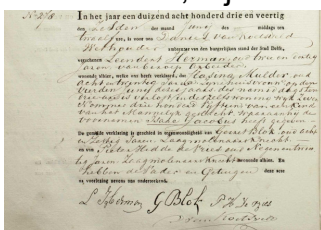 In het jaar een duizend acht honderd drie en veertig
den zesden der maand Juny des middags ten
twaalf ure, is voor ons Daniel van
Wethouder ambtenaar van den burgerlijken stand der Stad Delft,
verschenen Leendert Herman oud twee en veertig
jaren
wonende alhier, welke ons heeft verklaard, dat Mulder oud
acht en twintig jaren zijne huisvrouw op den
vierden Juny dezes jaars des namiddags ten
ure is verlost in derzelver woning wijk twee
Nommer drie honderd vijftien van een Kind
van het Mannelijk geslacht, waaraan hij de
voornamen Jacobus heeft gegeven
De gemelde verklaring is geschied in tegenwoordigheid van Gerrit Blok oud acht
en jaren Zaagmolenaarsknecht
en van Pieter de Vries oud Negenentwin
tig jaren Zaagmolenaarsknecht wonende alhier. En
hebben de Vader en Getuigen deze acte
na voorlezing nevens ons onderteekend.
L Herman G Blok P. H. De vries